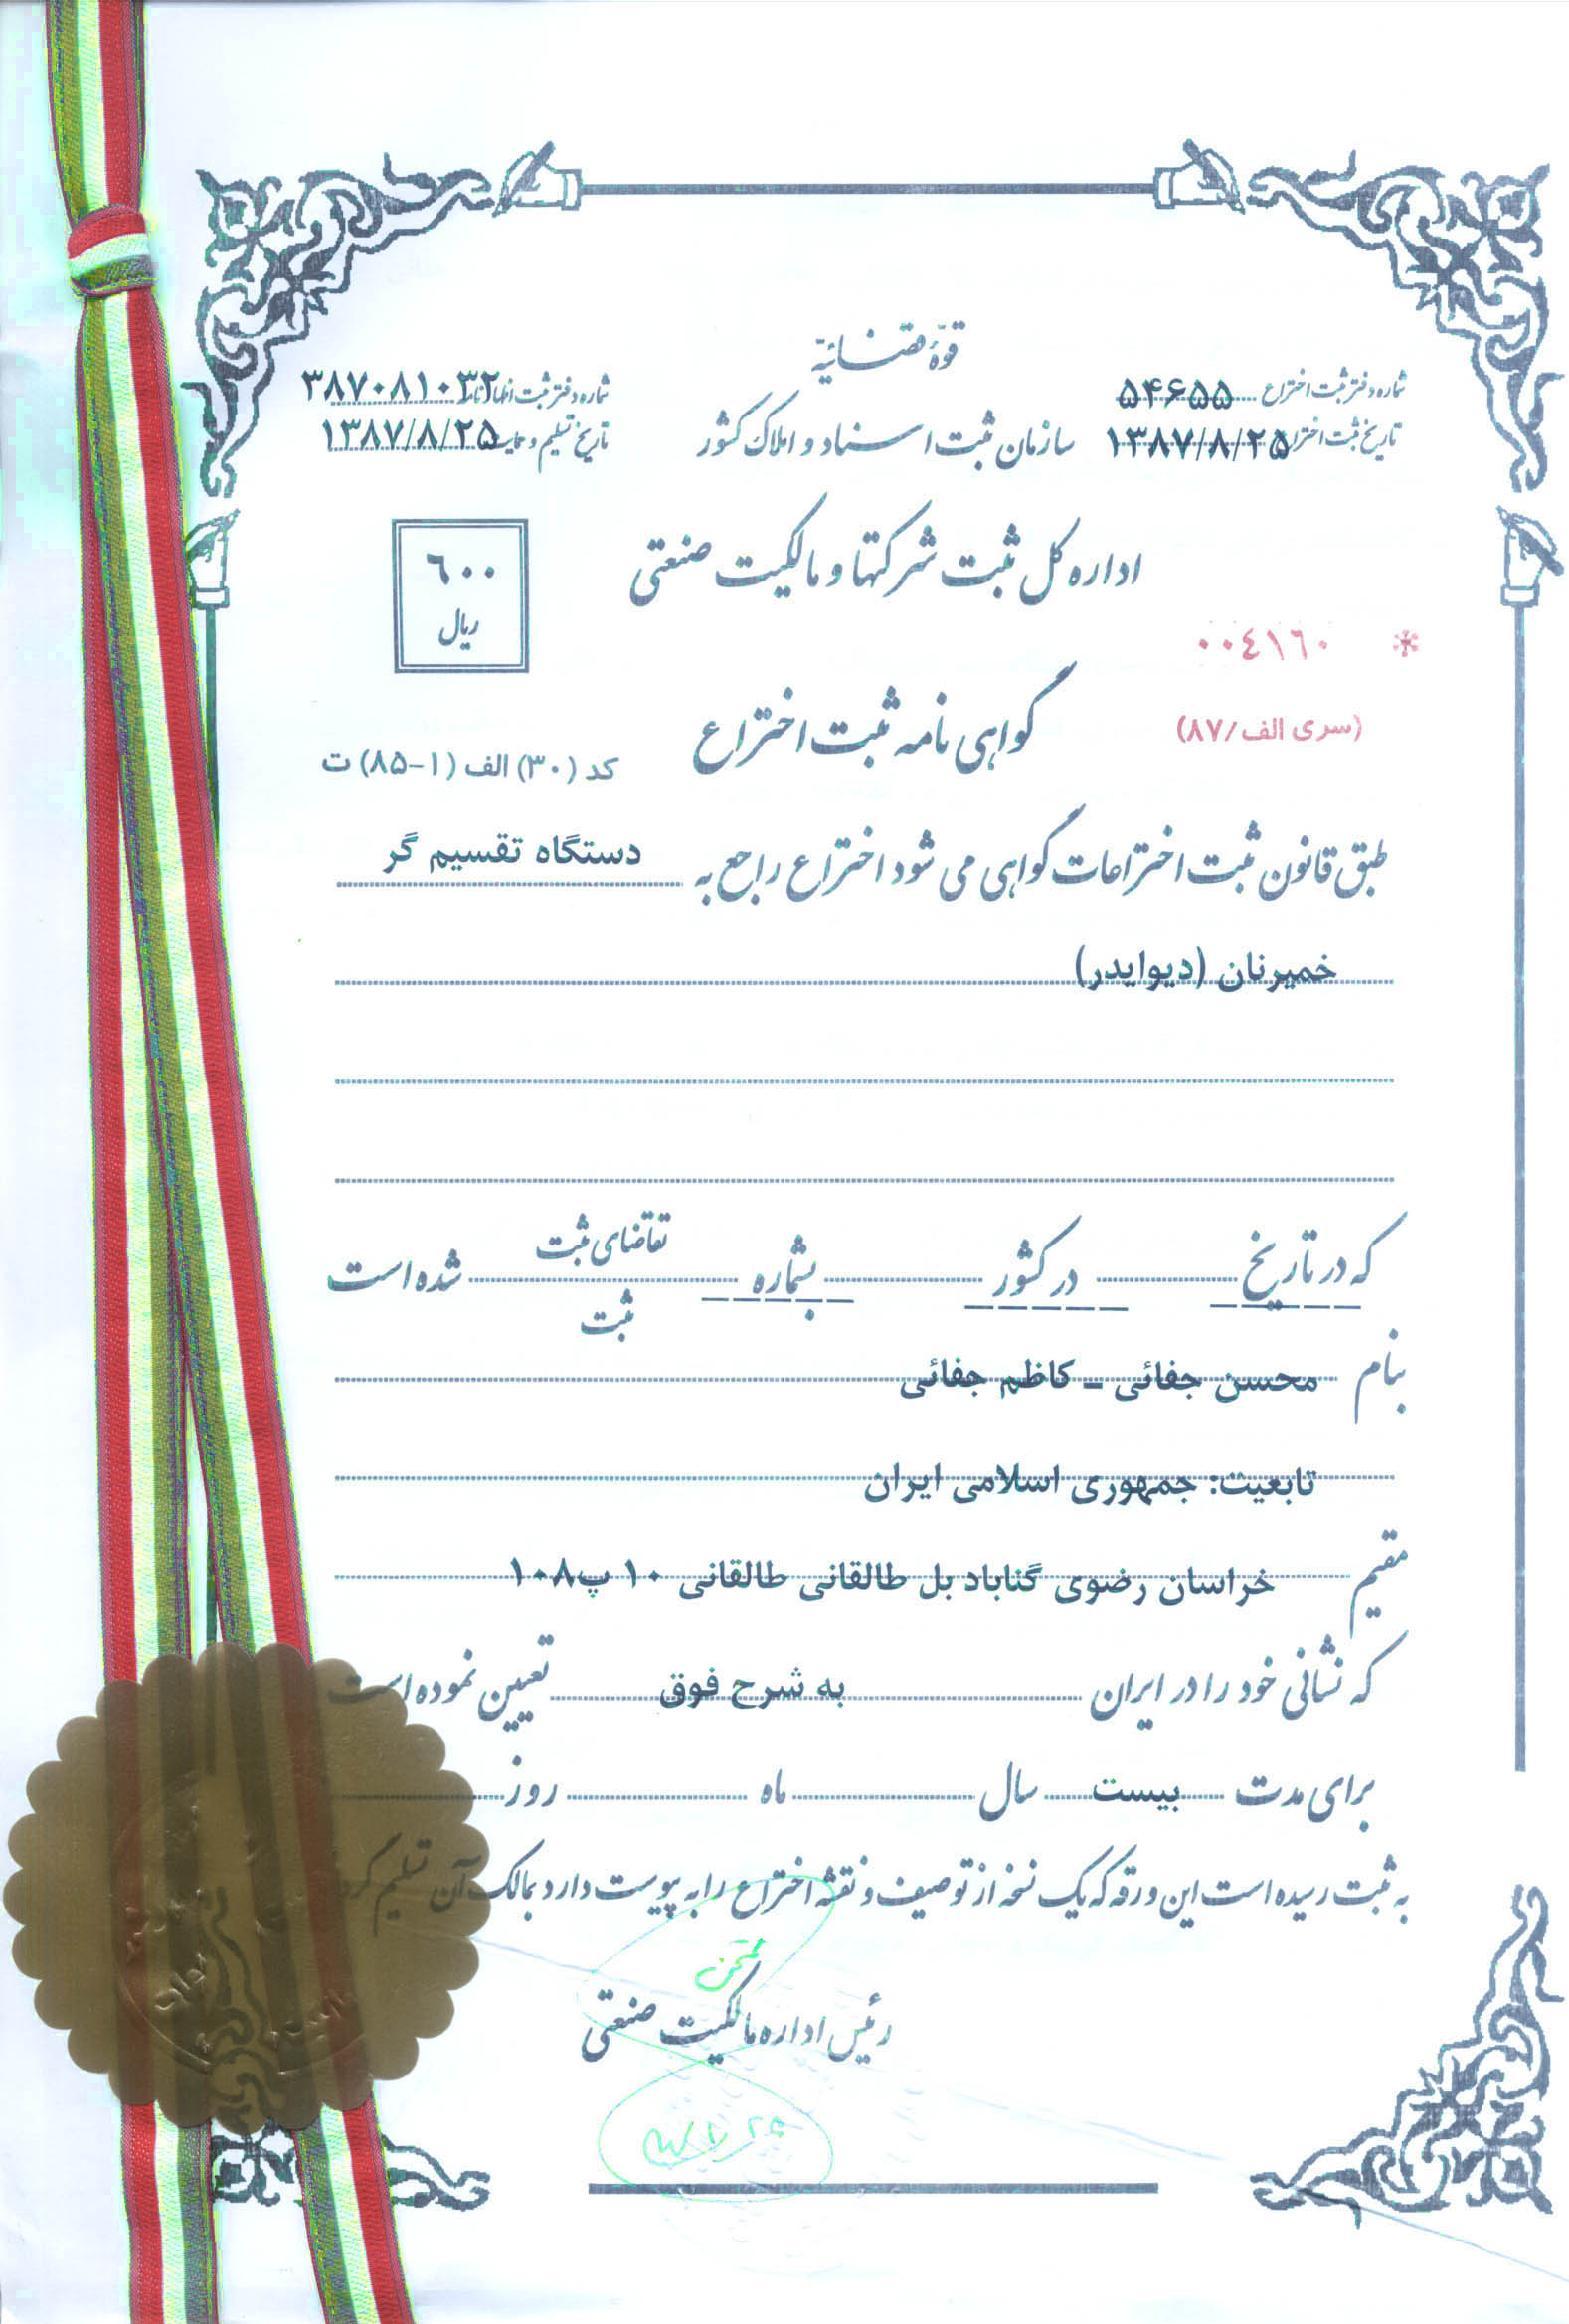 قوّهٔ قضائیّه
شماره دفتر ثبت اختراع ۵۴۶۵۵
تاریخ ثبت اختراع ۱۳۸۷/۸/۲۵
سازمان ثبت اسناد و املاک کشور
شماره دفتر ثبت اظهارنامه ۳۸۷۰۸۱۰۳۲
تاریخ تسلیم و ۱۳۸۷/۸/۲۵
اداره کل ثبت شرکتها و مالکیت صنعتی
۶۰۰
ریال
* ۰۰۴۱۶۰
(سری الف/۸۷)
گواهی نامه ثبت اختراع
کد (۳۰) الف (۱-۸۵) ت
طبق قانون ثبت اختراعات گواهی می شود اختراع راجع به دستگاه تقسیم گر
خمیرنان (دیوایدر)
که در تاریخ در کشور بشماره تقاضای ثبت شده است
ثبت
بنام محسن جفائی - کاظم جفائی
تابعیت: جمهوری اسلامی ایران
مقیم خراسان رضوی گناباد بل طالقانی طالقانی ۱۰ پ۱۰۸
که نشانی خود را در ایران به شرح فوق تعیین نموده است
برای مدت بیست سال ماه روز
به ثبت رسیده است این ورقه که یک نسخه از توصیف و نقشه اختراع را به پیوست دارد بمالک آن تسلیم
رئیس اداره مالکیت صنعتی